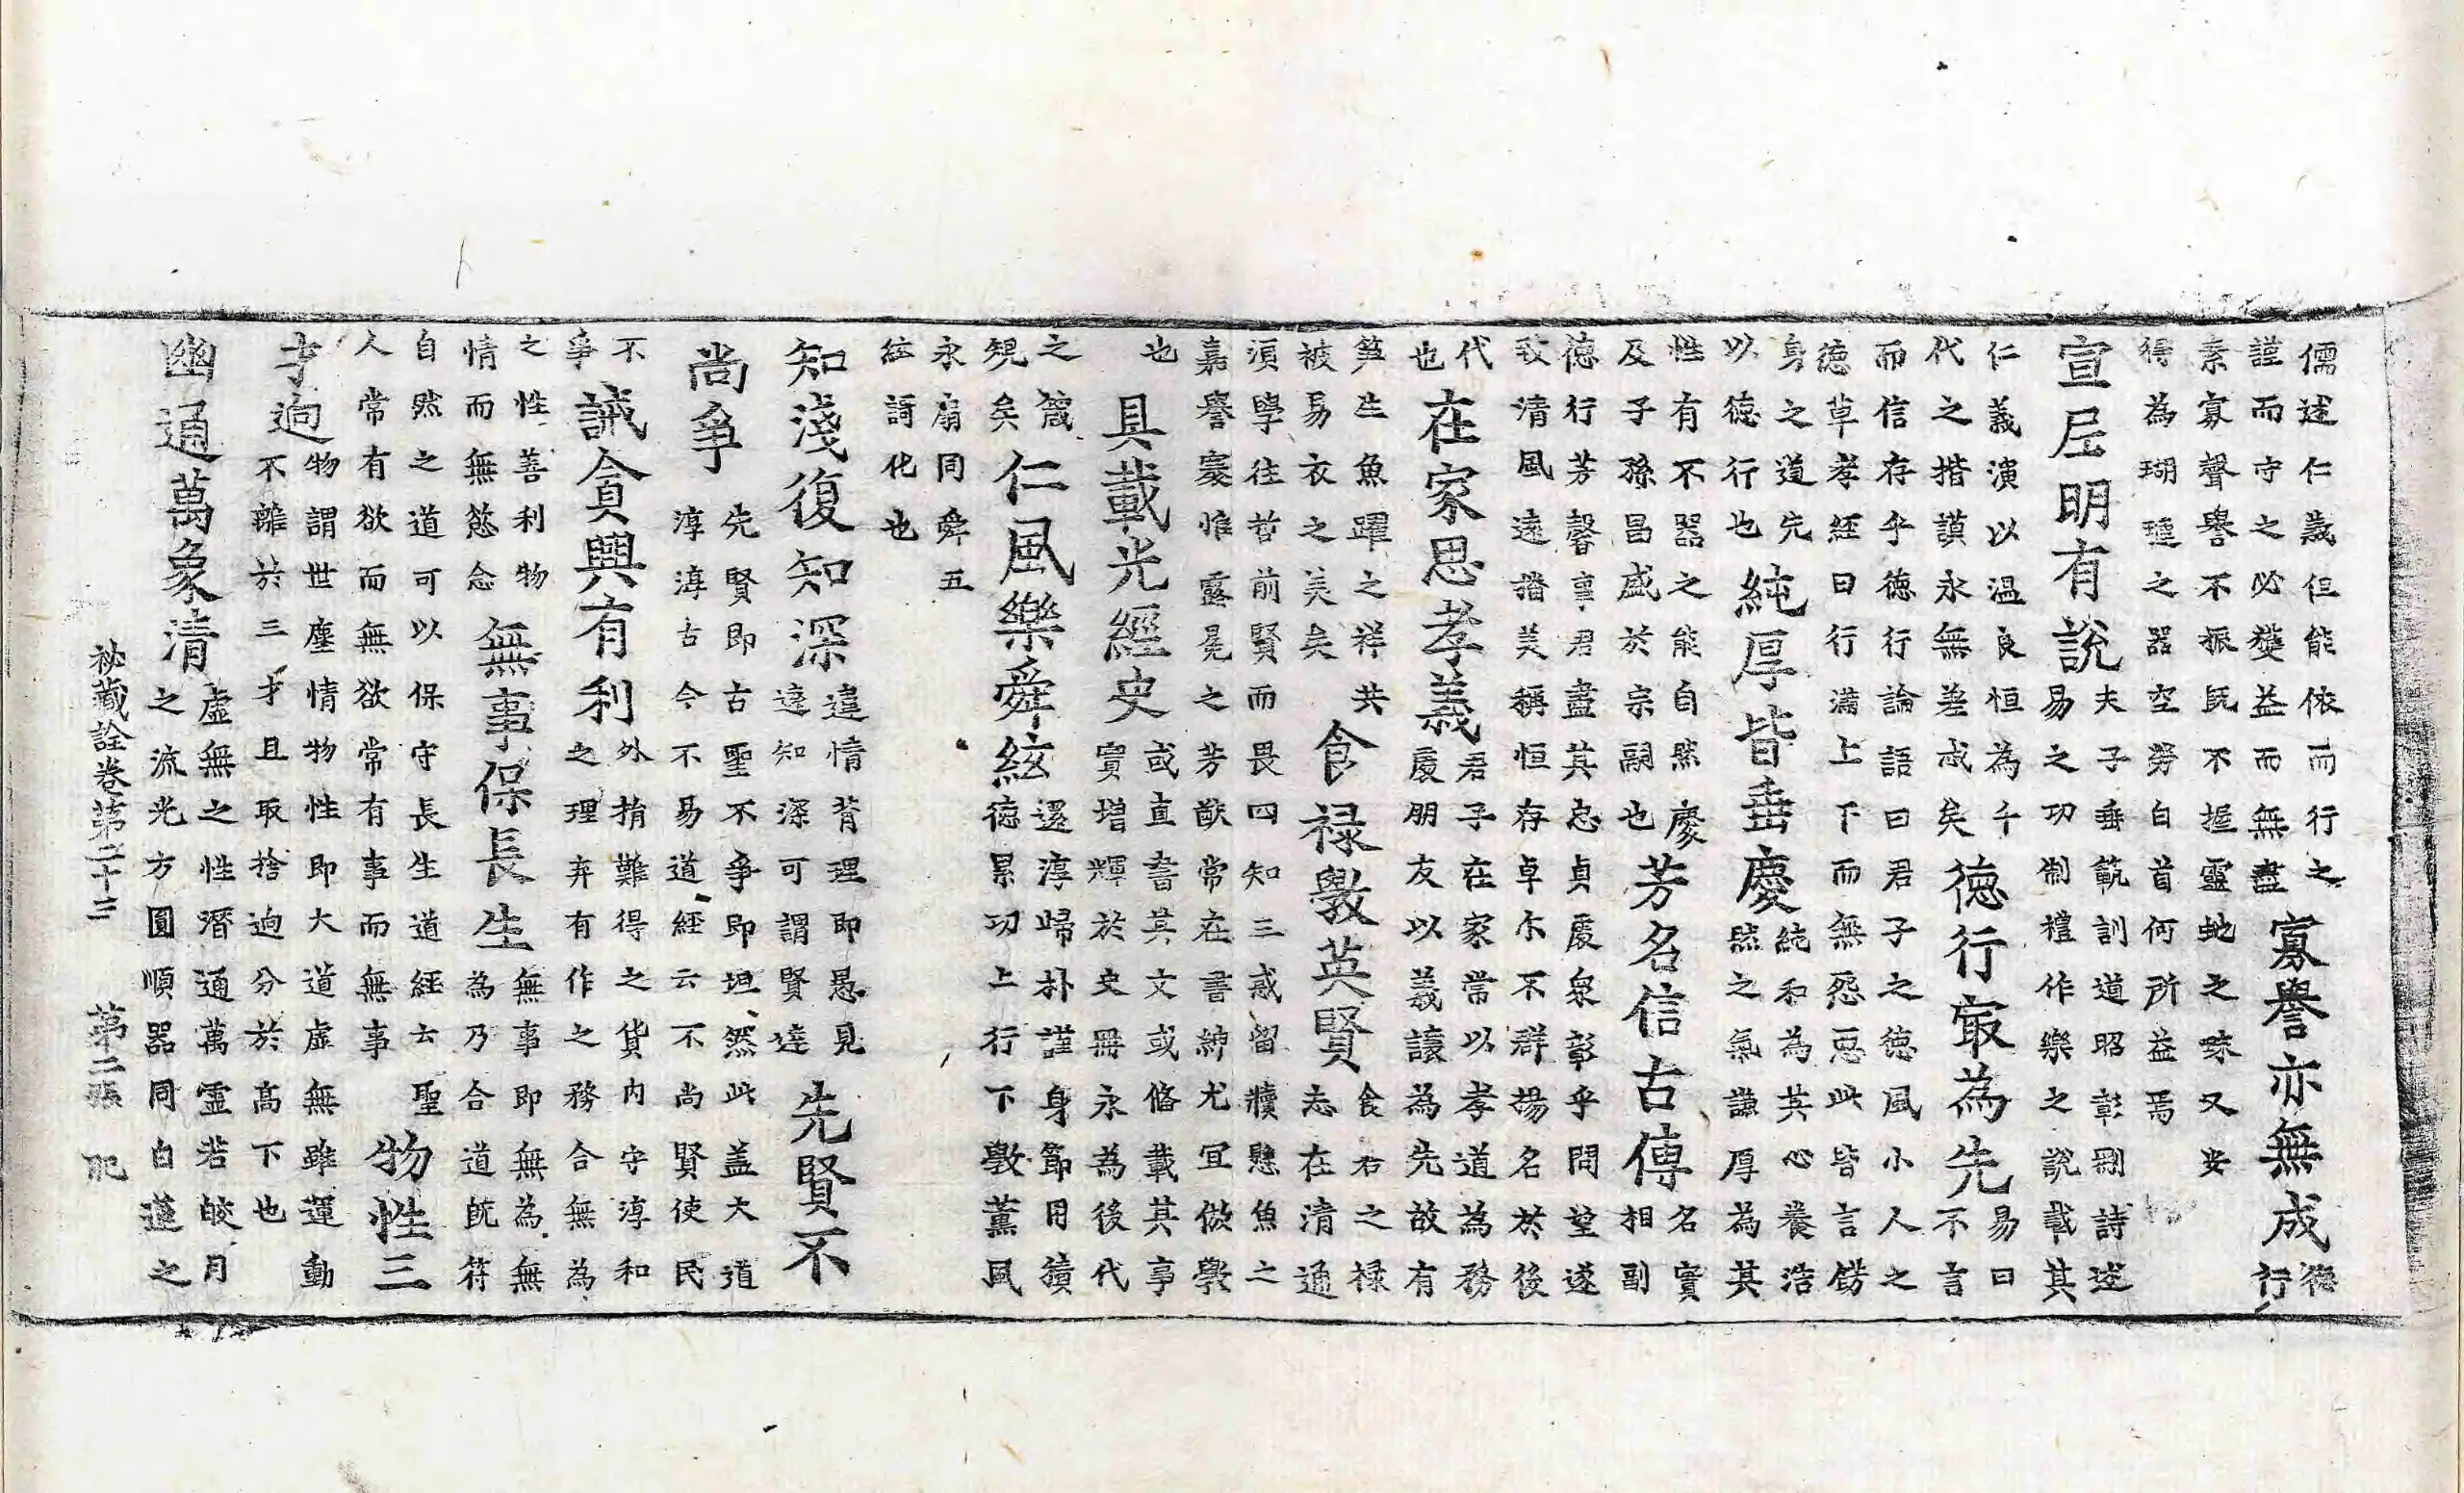 儒述仁義但能依而行之
謹而守之必獲益而無盡
寡譽亦無成
德
行
素寡聲譽不振既不握靈虵之珠又安
得為瑚璉之器空勞白首何所益焉
宣尼明有說
夫子垂範訓道昭彰刪詩述
易之功制禮作樂之說載其
仁義演以溫良恒為千
代之揩謨永無差忒矣
德行冣為先
易曰
不言
而信存乎德行論語曰君子之德風小人之
德草孝經曰行滿上下而無怨惡此皆言餝
身之道先
以德行也
純厚皆垂慶
純和為其心養浩
然之氣謙厚為其
性有不器之能自然慶
及子孫昌盛於宗嗣也
芳名信古傳
名實
相副
德行芳馨事君盡其忠貞處衆彰乎問望遂
致清風遠播美稱恒存卓尒不群揚名於後
代
也
在家思孝義
君子在家常以孝道為務
處朋友以義讓為先故有
笋生魚躍之祥共
被易衣之美矣
食祿斆英賢
食君之祿
志在清通
須學往哲前賢而畏四知三惑留犢懸魚之
嘉譽寔惟露冕之芳猷常在書紳尤宜倣斆
也
具載光經史
或直書其文或俻載其事
實增輝於史冊永為後代
之箴
規矣
仁風樂舜絃
還淳歸朴謹身節用積
德累功上行下斆薰風
永扇同舜五
絃謌化也
知淺復知深
違情背理即愚見
遠知深可謂賢達
先賢不
尚爭
先賢即古聖不爭即坦然此盖大道
淳淳古今不易道經云不尚賢使民
不
爭
誡貪興有利
外捐難得之貨內守淳和
之理弃有作之務合無為
之性善利物
情而無慾念
無事保長生
無事即無為無
為乃合道既符
自然之道可以保守長生道經云聖
人常有欲而無欲常有事而無事
物性三
才逈
物謂世塵情物性即大道虛無雖運動
不離於三才且取捨逈分於高下也
幽通萬象清
虛無之性潛通萬靈若皎月
之流光方圓順器同白蓮之
祕藏詮卷第二十三 第二張 肥